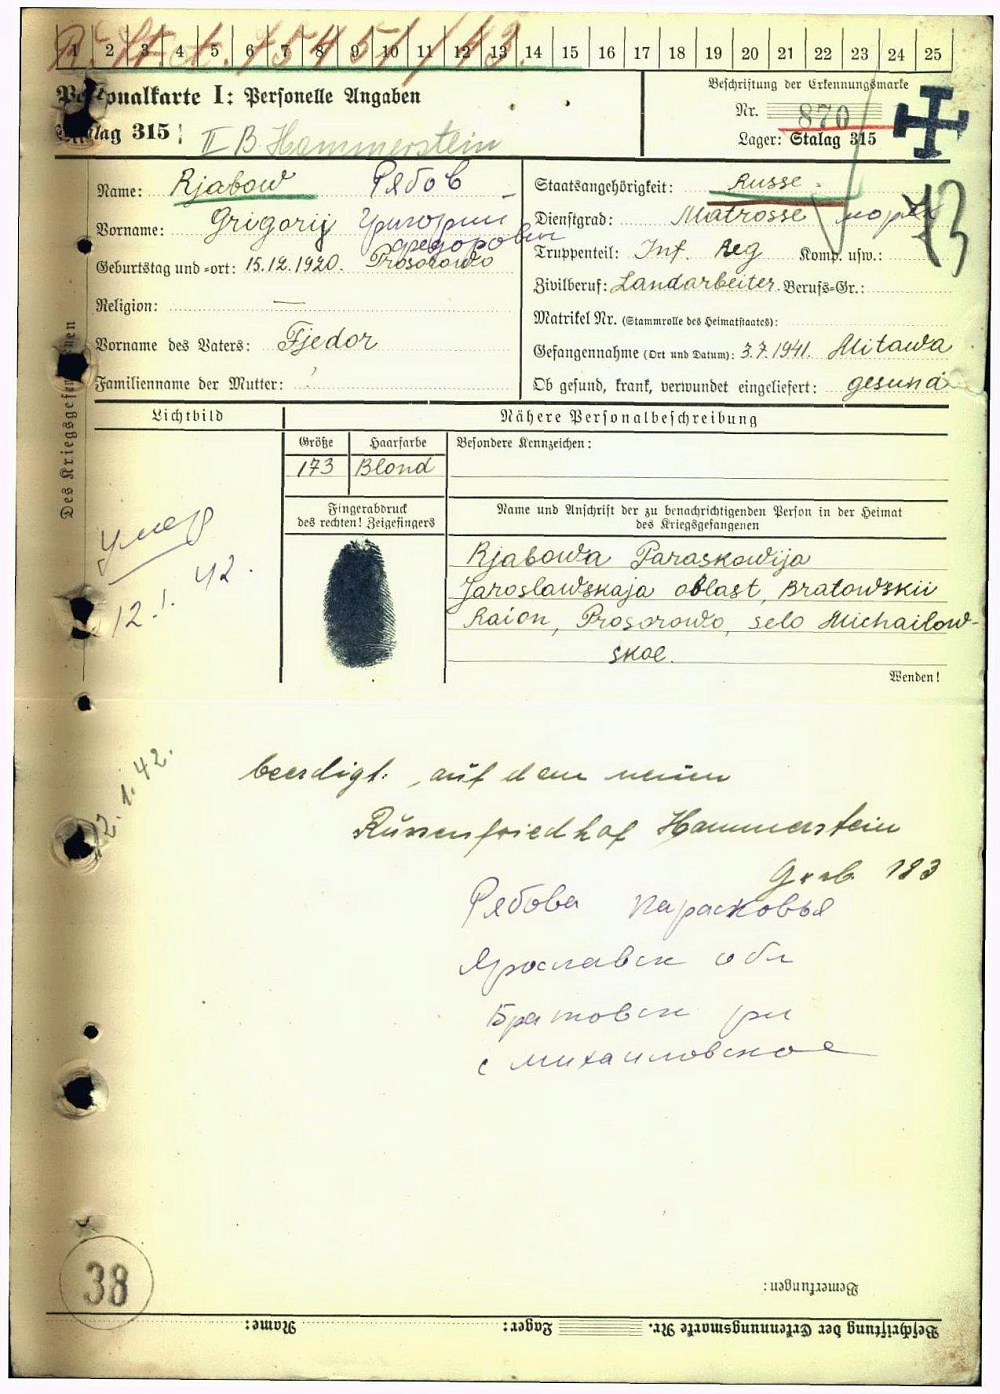 1 2 3 4 5 6 7 8 9 10 11 12 13 14 15 16 17 18 19 20 21 22 23 24 25
Personalkarte I: Personelle Angaben
Stalag 315
II B Hammerstein
Beschriftung der Erkennungsmarke
Nr. 870
Lager: Stalag 315
Des Kriegsgefangenen
Name: Rjabow Рябов
Vorname: Grigorij Григорий
Федорович
Geburtstag und -ort: 15.12.1920. Prosorowo
Religion: —
Vorname des Vaters: Fjedor
Familienname der Mutter:
Staatsangehörigkeit: Russe
Dienstgrad: Matrosse моряк
Truppenteil: Inf. Reg Komp. usw.:
Zivilberuf: Landarbeiter Berufs-Gr.:
Matrikel Nr. (Stammrolle des Heimatstaates):
Gefangennahme (Ort und Datum): 3.7.1941. Mitawa
Ob gesund, krank, verwundet eingeliefert: gesund
13
Lichtbild
Nähere Personalbeschreibung
Größe Haarfarbe Besondere Kennzeichen:
173 Blond
Fingerabdruck
des rechten! Zeigefingers
Name und Anschrift der zu benachrichtigenden Person in der Heimat
des Kriegsgefangenen
Rjabowa Paraskowija
Jaroslawskaja oblast, Bratowskii
Raion, Prosorowo, selo Michailow-
skoe.
Wenden!
умер
12.1.42.
12.1.42.
beerdigt: auf dem neuen
Russenfriedhof Hammerstein
Grab 183
Рябова Парасковья
Ярославск обл
Братовск рн
с михаиловское
38
Bemerkungen:
Beschriftung der Erkennungsmarke Nr. Lager: Name: